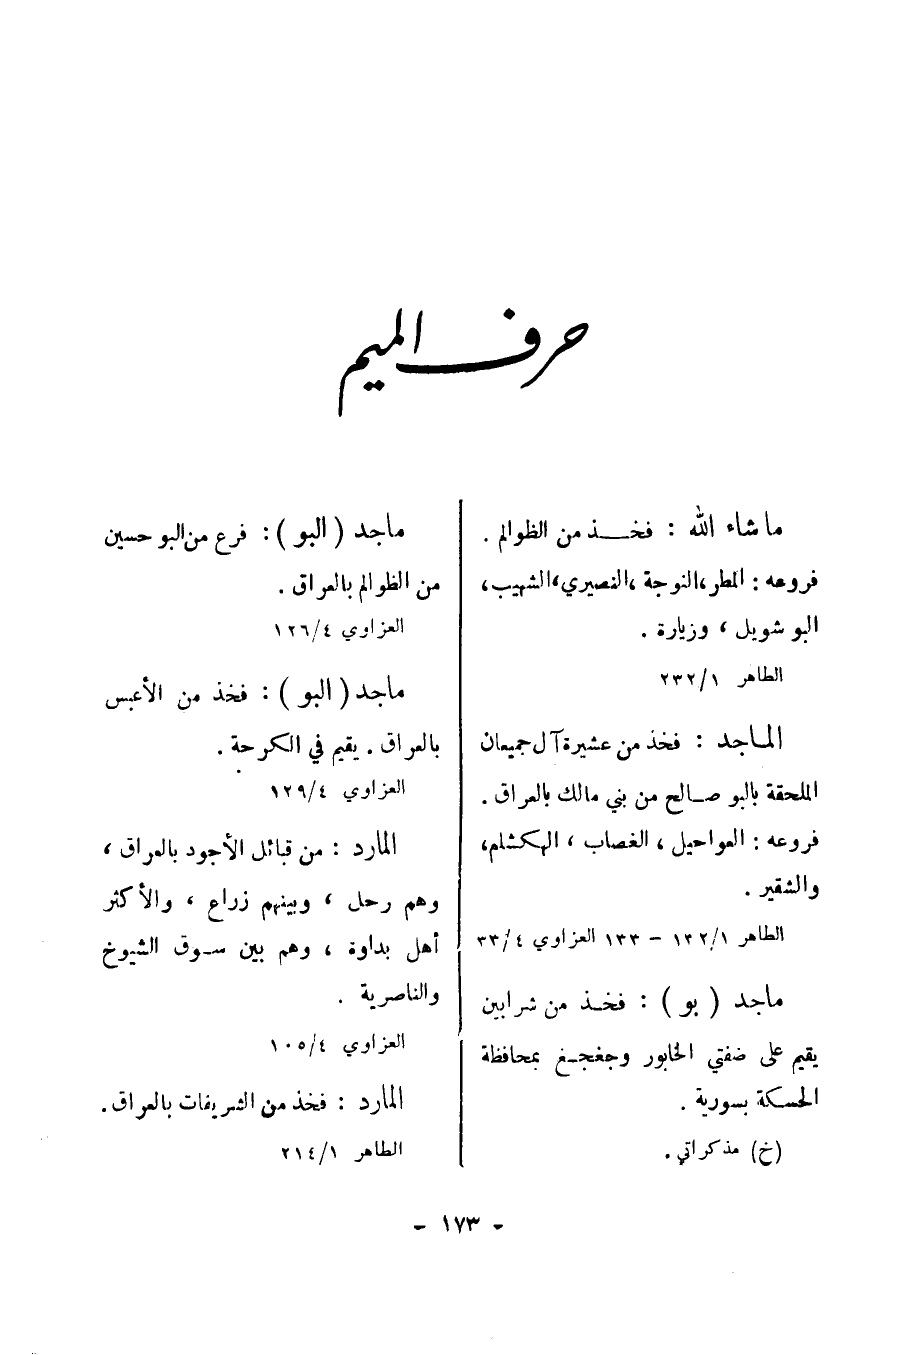 حرف الميم
ما شاء الله : فخـــذ من الظوالم .
فروعه : المطر ، النوجة ، النصيري ، الشهيب ،
البو شويل ، وزيارة .
الطاهر ٢٣٢/١
المـاجد : فخذ من عشيرة آل جميعان
الملحقة بالبو صـالح من بني مالك بالعراق .
فروعه : العواحيل ، الغصاب ، الهكشلم ،
والشقير .
الطاهر ١٣٢/١ – ١٣٣ العزاوي ٣٣/٤
ماجد ( بو ) : فخـذ من شرابين
يقيم على ضفتي الخابور وجغجـغ بمحافظة
الحسكة بسورية .
(خ) مذكراتي .
ماجد ( البو ) : فرع من البو حسين
من الظوالم بالعراق .
العزاوي ١٢٦/٤
ماجد ( البو ) : فخذ من الأعبس
بالعراق . يقيم في الكرحة .
العزاوي ١٢٩/٤
المارد : من قبائل الأجود بالعراق ،
وهم رحل ، وبينهم زراع ، والأكثر
أهل بداوة ، وهم بين سـوق الشيوخ
والناصرية .
العزاوي ١٠٥/٤
المارد : فخذ من الشريفات بالعراق .
الطاهر ٢١٤/١
- ١٧٣ -